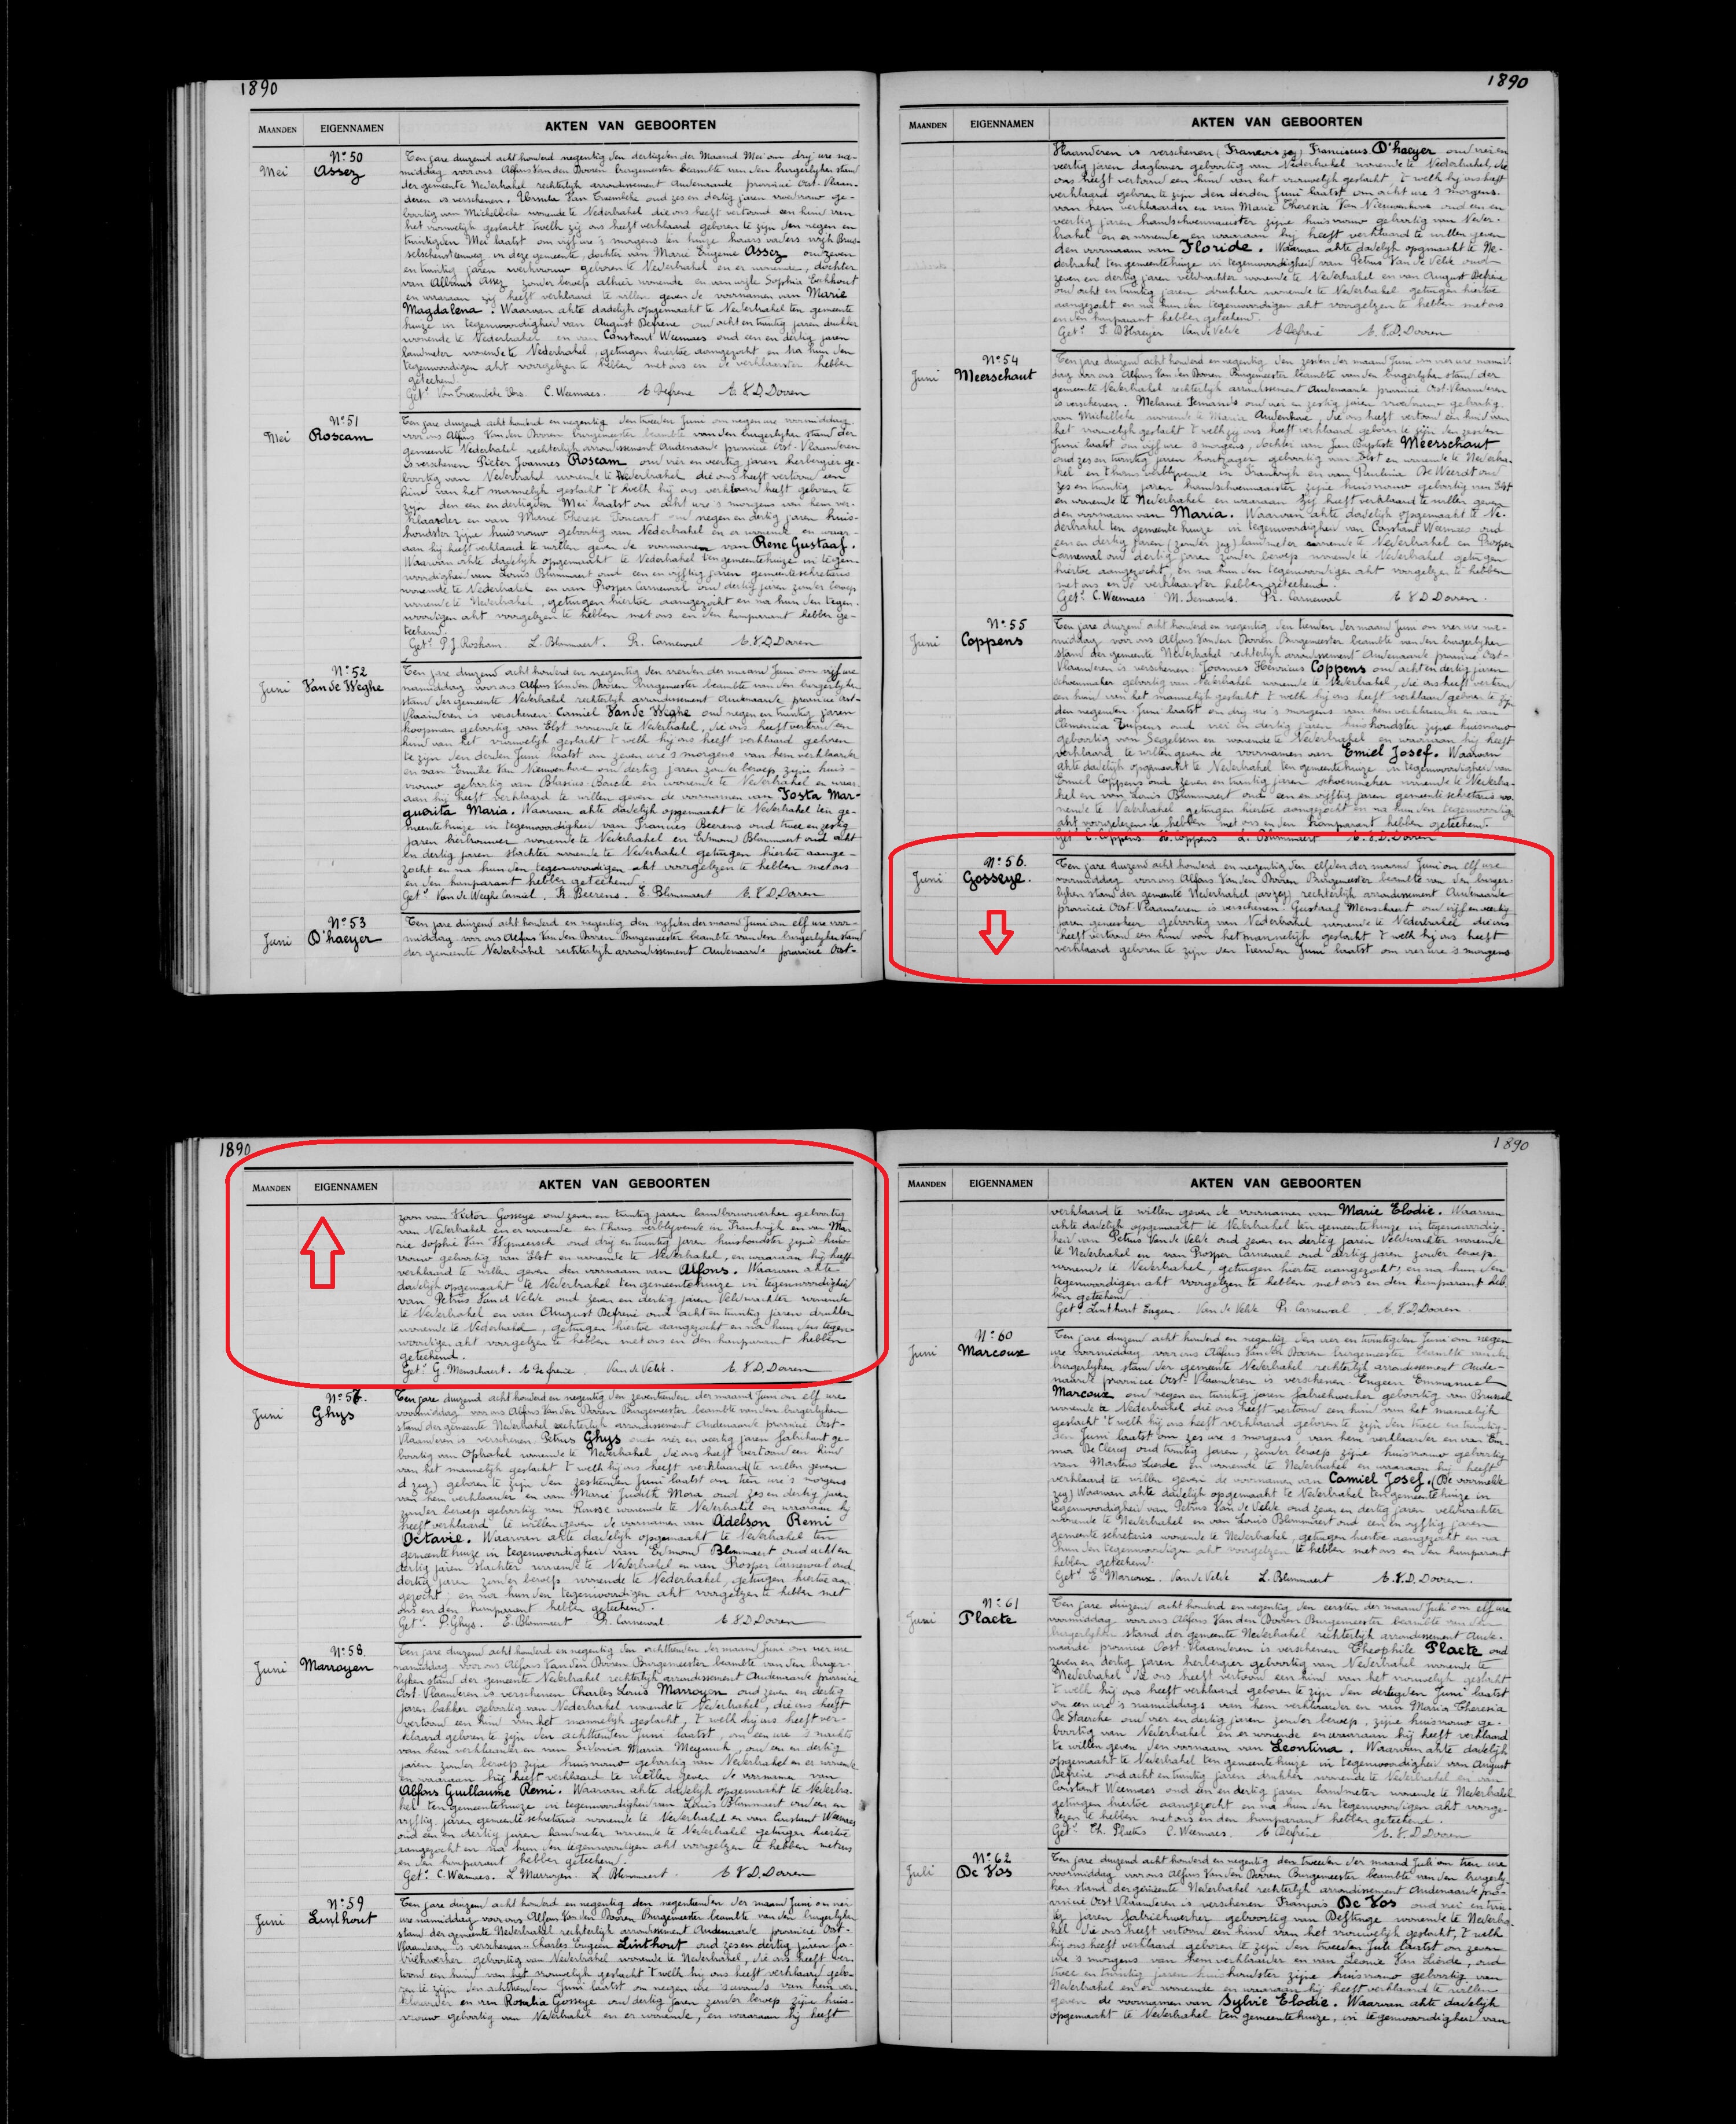 1890
MAANDEN EIGENNAMEN AKTEN VAN GEBOORTEN
Mei
Nº 50
Assez
Ten jare duizend acht honderd negentig den dertigsten der Maand Mei om drij ure na-
middag voor ons Alfons Van den Dooren burgemeester beambte van den burgerlijken stand
der gemeente Nederbrakel rechterlijk arrondissement Audenaarde provincie Oost-Vlaan-
deren is verschenen. Ursula Van Cuembeke oud zes en dertig jaren vroedvrouw ge-
boortig van Michelbeke wonende te Nederbrakel die ons heeft vertoond een kind van
het vrouwelijk geslacht twelk zij ons heeft verklaard geboren te zijn den negen en
twintigsten Mei laatst om vijf ure 's morgens ten huize haars vaders wijk Brus-
selschensteenweg in deze gemeente, dochter van Marie Eugenie Assez oud zeven
en twintig jaren werkvrouw geboren te Nederbrakel en er wonende, dochter
van Albinus Assez zonder beroep alhier wonende en van wijle Sophia Eeckhout
en waaraan zij heeft verklaard te willen geven de voornamen van Marie
Magdalena. Waarvan akte dadelijk opgemaakt te Nederbrakel ten gemeente
huize in tegenwoordigheid van August Defrene oud acht en twintig jaren drukker
wonende te Nederbrakel en van Constant Weemaes oud een en dertig jaren
landmeter wonende te Nederbrakel, getuigen hiertoe aangezocht en na hun den
tegenwoordigen akt voorgelezen te hebben met ons en de verklaarster hebben
geteekend.
C. Weemaes. A Defrene A. V. D. Dooren
Mei
Nº 51
Roscam
Ten jare duizend acht honderd en negentig den tweeden Juni om negen ure voormiddag
voor ons Alfons Van den Dooren burgemeester beambte van den burgerlijken stand der
gemeente Nederbrakel rechterlijk arrondissement Audenaarde provincie Oost-Vlaanderen
is verschenen Pieter Joannes Roscam oud vier en veertig jaren herbergier ge-
boortig van Nederbrakel wonende te Nederbrakel die ons heeft vertoond een
kind van het mannelijk geslacht 't welk hij ons verklaard heeft geboren te
zijn den een en dertigsten Mei laatst om acht ure 's morgens van hem ver-
klaarder en van Marie Therese Foucart oud negen en dertig jaren huis-
houdster zijne huisvrouw geboortig van Nederbrakel en er wonende en waar-
aan hij heeft verklaard te willen geven de voornamen van Rene Gustaaf.
Waarvan akte dadelijk opgemaakt te Nederbrakel ten gemeentehuize in tegen-
woordigheid van Louis Blommaert oud een en vijftig jaren gemeentesekretaris
wonende te Nederbrakel en van Prosper Carnewal oud dertig jaren zonder beroep
wonende te Nederbrakel, getuigen hiertoe aangezocht en na hun den tegen-
woordigen akt voorgelezen te hebben met ons en den komparant hebben ge-
teekend.
Getd P. J. Roskam. L. Blommaert. Pr. Carnewal A. V. D. Dooren
Juni
Nº 52
Van de Weghe
Ten jare duizend acht honderd en negentig den vierden der maand Juni om vijf ure
namiddag voor ons Alfons Van den Dooren burgemeester beambte van den burgerlijken
stand der gemeente Nederbrakel rechterlijk arrondissement Audenaarde provincie Oost-
Vlaanderen is verschenen Camiel Van de Weghe oud negen en twintig jaren
koopman geboortig van Elst wonende te Nederbrakel, die ons heeft vertoond een
kind van het vrouwelijk geslacht 't welk hij ons heeft verklaard geboren
te zijn den derden Juni laatst om zeven ure 's morgens van hem verklaarder
en van Emilie Van Nieuwenhove oud dertig jaren zonder beroep zijne huis-
vrouw geboortig van Blasius-Boucle en wonende te Nederbrakel en waar-
aan hij heeft verklaard te willen geven de voornamen van Josta Mar-
guerita Maria. Waarvan akte dadelijk opgemaakt te Nederbrakel ten ge-
meentehuize in tegenwoordigheid van Francies Beerens oud twee en zestig
jaren biertrouwer wonende te Nederbrakel en Edmond Blommaert oud acht
en dertig jaren slachter wonende te Nederbrakel getuigen hiertoe aange-
zocht en na hun den tegenwoordigen te hebben voorgelezen met ons
en den komparant hebben geteekend
Getd Van de Weghe Camiel. F. Beerens. E Blommaert A. V. D. Dooren
Juni
Nº 53
D'haeyer
Ten jare duizend acht honderd en negentig den vijfden der maand Juni om elf ure voor-
middag voor ons Alfons Van den Dooren Burgemeester beambte van den burgerlijken stand
der gemeente Nederbrakel rechterlijk arrondissement Audenaarde provincie Oost-
1890
MAANDEN EIGENNAMEN AKTEN VAN GEBOORTEN
Vlaanderen is verschenen (Francois zeg) Franciscus D'haeyer oud vier en
veertig jaren daglooner geboortig van Nederbrakel wonende te Nederbrakel, die
ons heeft vertoond een kind van het vrouwelijk geslacht, 't welk hij ons heeft
verklaard geboren te zijn den derden Juni laatst om acht ure 's morgens.
van hem verklaarder en van Marie Theresia Van Nieuwenhove oud een en
veertig jaren handschoenmaaister zijne huisvrouw geboortig van Neder-
brakel en er wonende en waaraan hij heeft verklaard te willen geven
den voornaam van Floride. Waarvan akte dadelijk opgemaakt te Ne-
derbrakel ten gemeentehuize in tegenwoordigheid van Petrus Van de Velde oud
zeven en dertig jaren veldwachter wonende te Nederbrakel en van August Defrene
oud acht en twintig jaren drukker wonende te Nederbrakel getuigen hiertoe
aangezocht en na hun den tegenwoordigen akt voorgelezen te hebben met ons
en den komparant hebben geteekend.
Getd F. D'Haeyer Van de Velde A Defrene A. V. D. Dooren
Juni
Nº 54
Meerschaut
Ten jare duizend acht honderd en negentig den zesden der maand Juni om vier ure namid-
dag voor ons Alfons Van den Dooren Burgemeester beambte van den burgerlijken stand der
gemeente Nederbrakel rechterlijk arrondissement Audenaarde provincie Oost-Vlaanderen
is verschenen. Melanie Temands oud vier en zestig jaren vroedvrouw geboortig
van Michelbeke wonende te Maria Audenhove, die ons heeft vertoond een kind van
het vrouwelijk geslacht 't welk zij ons heeft verklaard geboren te zijn den zesden
Juni laatst om vijf ure 's morgens, dochter van Jan Baptiste Meerschaut
oud zes en twintig jaren houtzager geboortig van Elst en wonende te Nederbra-
kel en thans verblijvende in Frankrijk en van Paulina De Weerdt oud
zes en twintig jaren handschoenmaaister zijne huisvrouw geboortig van Elst
en wonende te Nederbrakel en waaraan zij heeft verklaard te willen geven
den voornaam van Maria. Waarvan akte dadelijk opgemaakt te Ne-
derbrakel ten gemeentehuize in tegenwoordigheid van Constant Weemaes oud
een en dertig jaren (zonder zeg) landmeter wonende te Nederbrakel en Prosper
Carnewal oud dertig jaren zonder beroep wonende te Nederbrakel getuigen
hiertoe aangezocht, en na hun den tegenwoordigen akt voorgelezen te hebben
met ons en de verklaarster hebben geteekend.
Getd C. Weemaes. M. Temands. Pr. Carnewal A. V. D. Dooren.
Juni
Nº 55
Coppens
Ten jare duizend acht honderd en negentig den tienden der maand Juni om vier ure na-
middag voor ons Alfons Van den Dooren Burgemeester beambte van den burgerlijken
stand der gemeente Nederbrakel rechterlijk arrondissement Audenaarde provincie Oost-
Vlaanderen is verschenen Joannes Henricus Coppens oud acht en dertig jaren
schoenmaker geboortig van Nederbrakel wonende te Nederbrakel, die ons heeft vertoond
een kind van het mannelijk geslacht 't welk hij ons heeft verklaard geboren te zijn
den negenden Juni laatst om drij ure 's morgens van hem verklaarder en van
Clemencia oud vier en dertig jaren huishoudster zijne huisvrouw
geboortig van Segelsem en wonende te Nederbrakel en waaraan hij heeft
verklaard te willen geven de voornamen van Emiel Josef. Waarvan
akte dadelijk opgemaakt te Nederbrakel ten gemeentehuize in tegenwoordigheid van
Emiel Coppens oud zeven en twintig jaren schoenmaker wonende te Nederbra-
kel en van Louis Blommaert oud een en vijftig jaren gemeentesekretaris wo-
nende te Nederbrakel getuigen hiertoe aangezocht en na hun den tegenwoordigen
akt voorgelezen te hebben met ons en den komparant hebben geteekend.
Getd E. Coppens. H. Coppens L. Blommaert A. V. D. Dooren
Juni
Nº 56.
Gosseye.
Ten jare duizend acht honderd en negentig den elfden der maand Juni om elf ure
voormiddag voor ons Alfons Van den Dooren Burgemeester beambte van den burger-
lijken stand der gemeente Nederbrakel rechterlijk arrondissement Audenaarde
provincie Oost-Vlaanderen is verschenen. Gustaaf Menschaert oud vijf en veertig
jaren geneesheer geboortig van Nederbrakel wonende te Nederbrakel die ons
heeft vertoond een kind van het mannelijk geslacht 't welk hij ons heeft
verklaard geboren te zijn den tienden Juni laatst om vier ure 's morgens
1890
MAANDEN EIGENNAMEN AKTEN VAN GEBOORTEN
zoon van Victor Gosseye oud zeven en twintig jaren landbouwwerker geboortig
van Nederbrakel en er wonende en thans verblijvende in Frankrijk en van Ma-
rie Sophie Van Wymeersch oud drij en twintig jaren huishoudster zijne huis-
vrouw geboortig van Elst en wonende te Nederbrakel, en waaraan hij heeft
verklaard te willen geven den voornaam van Alfons. Waarvan akte
dadelijk opgemaakt te Nederbrakel ten gemeentehuize in tegenwoordigheid
van Petrus Van de Velde oud zeven en dertig jaren Veldwachter wonende
te Nederbrakel en van August Defrene oud acht en twintig jaren drukker
wonende te Nederbrakel, getuigen hiertoe aangezocht en na hun den tegen-
woordigen akt voorgelezen te hebben met ons en den komparant hebben
geteekend.
Getd G. Menschaert. A Defrene Van de Velde. A. V. D. Dooren
Juni
Nº 57.
Ghys
Ten jare duizend acht honderd en negentig den zeventienden der maand Juni om elf ure
voormiddag voor ons Alfons Van den Dooren Burgemeester beambte van den burgerlijken
stand der gemeente Nederbrakel rechterlijk arrondissement Audenaarde provincie Oost-
Vlaanderen is verschenen Petrus Ghys oud vier en veertig jaren fabrikant ge-
boortig van Opbrakel wonende te Nederbrakel die ons heeft vertoond een kind
van het mannelijk geslacht 't welk hij ons heeft verklaard (te willen geven
d zeg) geboren te zijn den zestienden Juni laatst om tien ure 's morgens
van hem verklaarder en van Marie Judith Mora oud zes en dertig jaren
zonder beroep geboortig van Ronsse wonende te Nederbrakel en waaraan hij
heeft verklaard te willen geven de voornamen van Adelson Remi
Octavie. Waarvan akte dadelijk opgemaakt te Nederbrakel ten
gemeentehuize in tegenwoordigheid van Edmond Blommaert oud acht en
dertig jaren slachter wonende te Nederbrakel en van Prosper Carnewal oud
dertig jaren zonder beroep wonende te Nederbrakel, getuigen hiertoe aan-
gezocht, en na hun den tegenwoordigen akt voorgelezen te hebben met
ons en den komparant hebben geteekend.
Getd P. Ghys. E. Blommaert Pr. Carnewal. A. V. D. Dooren
Juni
Nº 58.
Marroyen
Ten jare duizend acht honderd en negentig den achttienden der maand Juni om vier ure
namiddag voor ons Alfons Van den Dooren Burgemeester beambte van den burger-
lijken stand der gemeente Nederbrakel rechterlijk arrondissement Audenaarde provincie
Oost-Vlaanderen is verschenen Charles Louis Marroyen oud zeven en dertig
jaren bakker geboortig van Nederbrakel wonende te Nederbrakel, die ons heeft
vertoond een kind van het mannelijk geslacht, 't welk hij ons heeft ver-
klaard geboren te zijn den achttienden Juni laatst, om een ure 's nachts
van hem verklaarder en van Sidonia Maria Meganck, oud een en dertig
jaren zonder beroep zijne huisvrouw geboortig van Nederbrakel en er wonende
en waaraan hij heeft verklaard te willen geven de voornamen van
Alfons Guillaume Remi. Waarvan akte dadelijk opgemaakt te Nederbra-
kel ten gemeentehuize, in tegenwoordigheid van Louis Blommaert oud een en
vijftig jaren gemeentesekretaris wonende te Nederbrakel en van Constant Weemaes
oud een en dertig jaren landmeter wonende te Nederbrakel getuigen hiertoe
aangezocht en na hun den tegenwoordigen akt voorgelezen te hebben met ons
en den komparant hebben geteekend.
Getd C. Weemaes. L Marroyen. L. Blommaert. A. V. D. Dooren
Juni
Nº 59
Linthout
Ten jare duizend acht honderd en negentig den negentienden der maand Juni om vier
ure namiddag voor ons Alfons Van den Dooren Burgemeester beambte van den burgerlijken
stand der gemeente Nederbrakel rechterlijk arrondissement Audenaarde provincie Oost-
Vlaanderen is verschenen Charles Eugeen Linthout oud zes en dertig jaren fa-
briekwerker geboortig van Nederbrakel wonende te Nederbrakel, die ons heeft ver-
toond een kind van het vrouwelijk geslacht 't welk hij ons heeft verklaard gebo-
ren te zijn den achttienden Juni laatst om negen ure 's avonds van hem ver-
klaarder en van Rosalia Gosseye oud dertig jaren zonder beroep zijne huis-
vrouw geboortig van Nederbrakel en er wonende, en waaraan hij heeft
1890
MAANDEN EIGENNAMEN AKTEN VAN GEBOORTEN
verklaard te willen geven de voornamen van Marie Elodie. Waarvan
akte dadelijk opgemaakt te Nederbrakel ten gemeentehuize in tegenwoordig-
heid van Petrus Van de Velde oud zeven en dertig jaren Veldwachter wonende
te Nederbrakel en van Prosper Carnewal oud dertig jaren zonder beroep
wonende te Nederbrakel, getuigen hiertoe aangezocht, en na hun den
tegenwoordigen akt voorgelezen te hebben met ons en den komparant heb-
ben geteekend.
Getd Linthout Eugeen. Van de Velde Pr. Carnewal. A. V. D. Dooren
Juni
Nº 60
Marcoux
Ten jare duizend acht honderd en negentig den vier en twintigsten Juni om negen
ure voormiddag voor ons Alfons Van den Dooren burgemeester beambte van den
burgerlijken stand der gemeente Nederbrakel rechterlijk arrondissement Aude-
naarde provincie Oost-Vlaanderen is verschenen Eugeen Emmanuel
Marcoux oud negen en twintig jaren fabriekwerker geboortig van Brussel
wonende te Nederbrakel die ons heeft vertoond een kind van het mannelijk
geslacht 't welk hij ons heeft verklaard geboren te zijn den twee en twintig-
sten Juni laatst om zes ure 's morgens van hem verklaarder en van Em-
ma De Clercq oud twintig jaren, zonder beroep zijne huisvrouw geboortig
van Martens Lierde en wonende te Nederbrakel en waaraan hij heeft
verklaard te willen geven de voornamen van Camiel Josef. (De voormelde
zeg) Waarvan akte dadelijk opgemaakt te Nederbrakel ten gemeentehuize in
tegenwoordigheid van Petrus Van de Velde oud zeven en dertig jaren veldwachter
wonende te Nederbrakel en van Louis Blommaert oud een en vijftig jaren
gemeentesekretaris wonende te Nederbrakel, getuigen hiertoe aangezocht en na
hun den tegenwoordigen akt voorgelezen te hebben met ons en den komparant
hebben geteekend.
Getd E. Marcoux. Van de Velde L. Blommaert A. V. D. Dooren.
Juni
Nº 61
Placte
Ten jare duizend acht honderd en negentig den eersten der maand Juli om elf ure
voormiddag voor ons Alfons Van den Dooren Burgemeester beambte van den
burgerlijken stand der gemeente Nederbrakel rechterlijk arrondissement Aude-
naarde provincie Oost-Vlaanderen is verschenen Theophile Placte oud
zeven en dertig jaren herbergier geboortig van Nederbrakel wonende te
Nederbrakel die ons heeft vertoond een kind van het vrouwelijk geslacht
't welk hij ons heeft verklaard geboren te zijn den dertigsten Juni laatst
om een ure 's namiddags van hem verklaarder en van Maria Theresia
De Staercke oud vier en dertig jaren zonder beroep, zijne huisvrouw ge-
boortig van Nederbrakel en er wonende en waaraan hij heeft verklaard
te willen geven den voornaam van Leontina. Waarvan akte dadelijk
opgemaakt te Nederbrakel ten gemeentehuize in tegenwoordigheid van August
Defrene oud acht en twintig jaren drukker wonende te Nederbrakel en van
Constant Weemaes oud een en dertig jaren landmeter wonende te Nederbrakel
getuigen hiertoe aangezocht en na hun den tegenwoordigen akt voorge-
lezen te hebben met ons en den komparant hebben geteekend.
Getd Th. Plactes C. Weemaes. A Defrene A. V. D. Dooren
Juli
Nº 62
De Vos
Ten jare duizend acht honderd en negentig den tweeden der maand Juli om tien ure
voormiddag voor ons Alfons Van den Dooren Burgemeester beambte van den burgerlij-
ken stand der gemeente Nederbrakel rechterlijk arrondissement Audenaarde pro-
vincie Oost-Vlaanderen is verschenen François De Vos oud vier en twin-
tig jaren fabriekwerker geboortig van Deftinge wonende te Nederbra-
kel die ons heeft vertoond een kind van het vrouwelijk geslacht, 't welk
hij ons heeft verklaard geboren te zijn den tweeden Juli laatst om zeven
ure 's morgens van hem verklaarder en van Leonie Van Lierde, oud
twee en twintig jaren huishoudster zijne huisvrouw geboortig van
Nederbrakel en er wonende en waaraan hij heeft verklaard te willen
geven de voornamen van Sylvie Elodie. Waarvan akte dadelijk
opgemaakt te Nederbrakel ten gemeentehuize, in tegenwoordigheid van